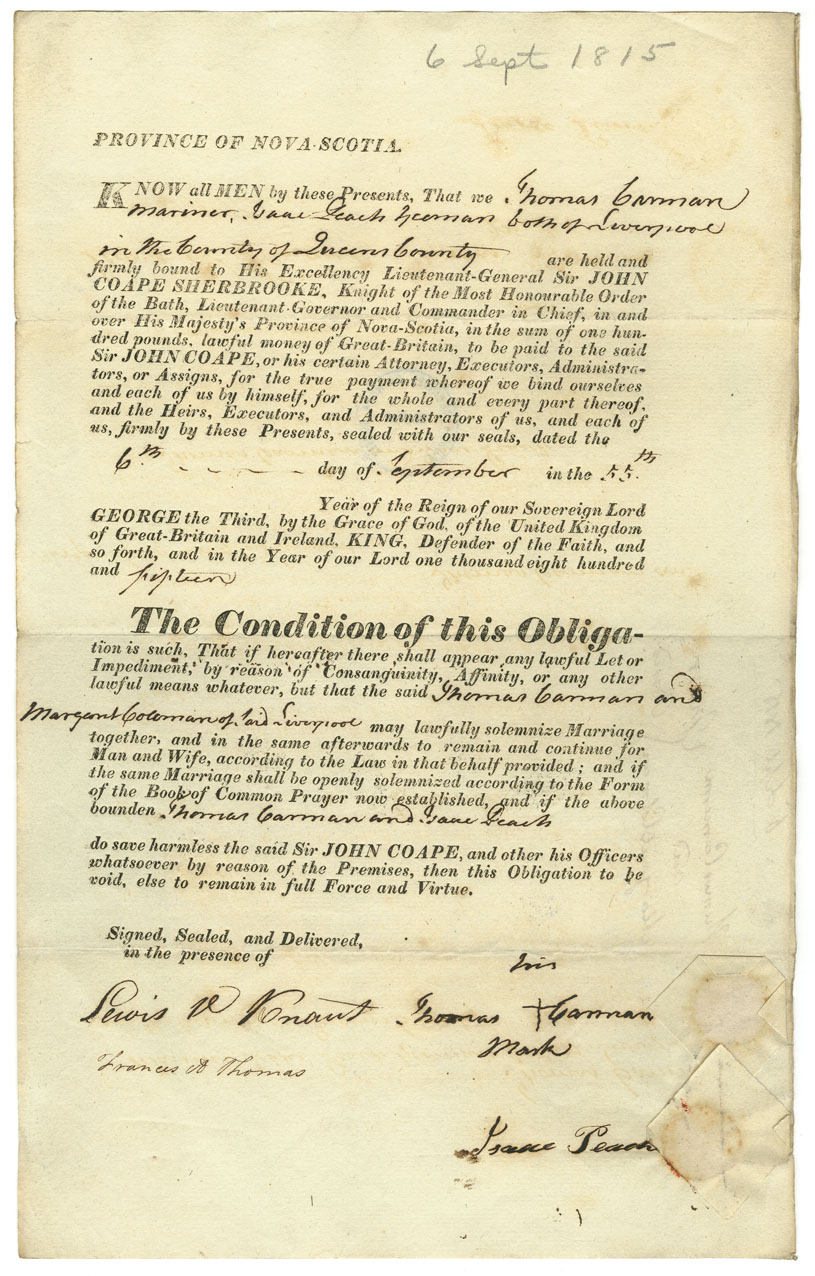 6 Sept 1815
PROVINCE OF NOVA-SCOTIA.
KNOW all MEN by these Presents, That we Thomas Carman
Mariner, Isaac Peach Yeoman both of Liverpool
in the County of Queens County are held and
firmly bound to His Excellency Lieutenant-General Sir JOHN
COAPE SHERBROOKE, Knight of the Most Honourable Order
of the Bath, Lieutenant-Governor and Commander in Chief, in and
over His Majesty's Province of Nova-Scotia, in the sum of one hun-
dred pounds, lawful money of Great-Britain, to be paid to the said
Sir JOHN COAPE, or his certain Attorney, Executors, Administra-
tors, or Assigns, for the true payment whereof we bind ourselves
and each of us by himself, for the whole and every part thereof,
and the Heirs, Executors, and Administrators of us, and each of
us, firmly by these Presents, sealed with our seals, dated the
6th day of September in the 55th
Year of the Reign of our Sovereign Lord
GEORGE the Third, by the Grace of God, of the United Kingdom
of Great-Britain and Ireland, KING, Defender of the Faith, and
so forth, and in the Year of our Lord one thousand eight hundred
and fifteen
The Condition of this Obliga-
tion is such, That if hereafter there shall appear any lawful Let or
Impediment, by reason of Consanguinity, Affinity, or any other
lawful means whatever, but that the said Thomas Carman and
Margaret Coleman of said Liverpool may lawfully solemnize Marriage
together, and in the same afterwards to remain and continue for
Man and Wife, according to the Law in that behalf provided; and if
the same Marriage shall be openly solemnized according to the Form
of the Book of Common Prayer now established, and if the above
bounden Thomas Carman and Isaac Peach
do save harmless the said Sir JOHN COAPE, and other his Officers
whatsoever by reason of the Premises, then this Obligation to be
void, else to remain in full Force and Virtue.
Signed, Sealed, and Delivered,
in the presence of
his
Lewis D Knaut Thomas + Carman
Mark
Frances A Thomas
Isaac Peach